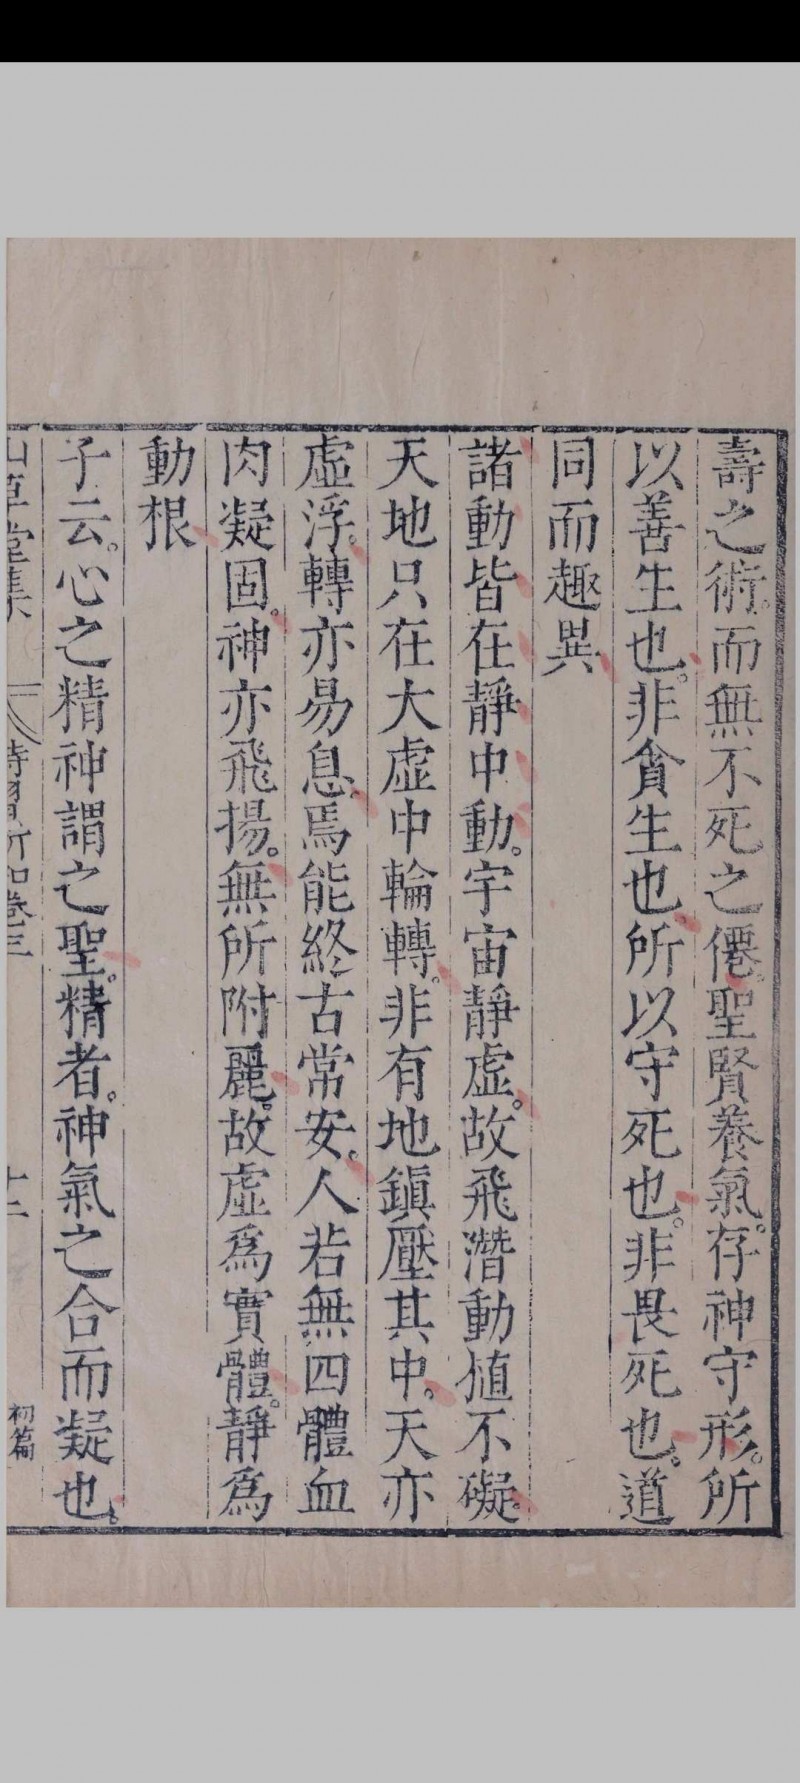 壽之術。而無不死之僊。聖賢養氣。存神守形。所
以善生也。非貪生也。所以守死也。非畏死也。道
同而趣異
諸動皆在靜中動。宇宙靜虛。故飛潛動植不礙。
天地只在大虛中輪轉。非有地鎮壓其中。天亦
虛浮。轉亦易息。焉能終古常安。人若無四體血
肉凝固。神亦飛揚。無所附麗。故虛爲實體。靜爲
動根
子云。心之精神謂之聖。精者。神氣之合而凝也。
山草堂集
時習所知卷三
十二
初篇